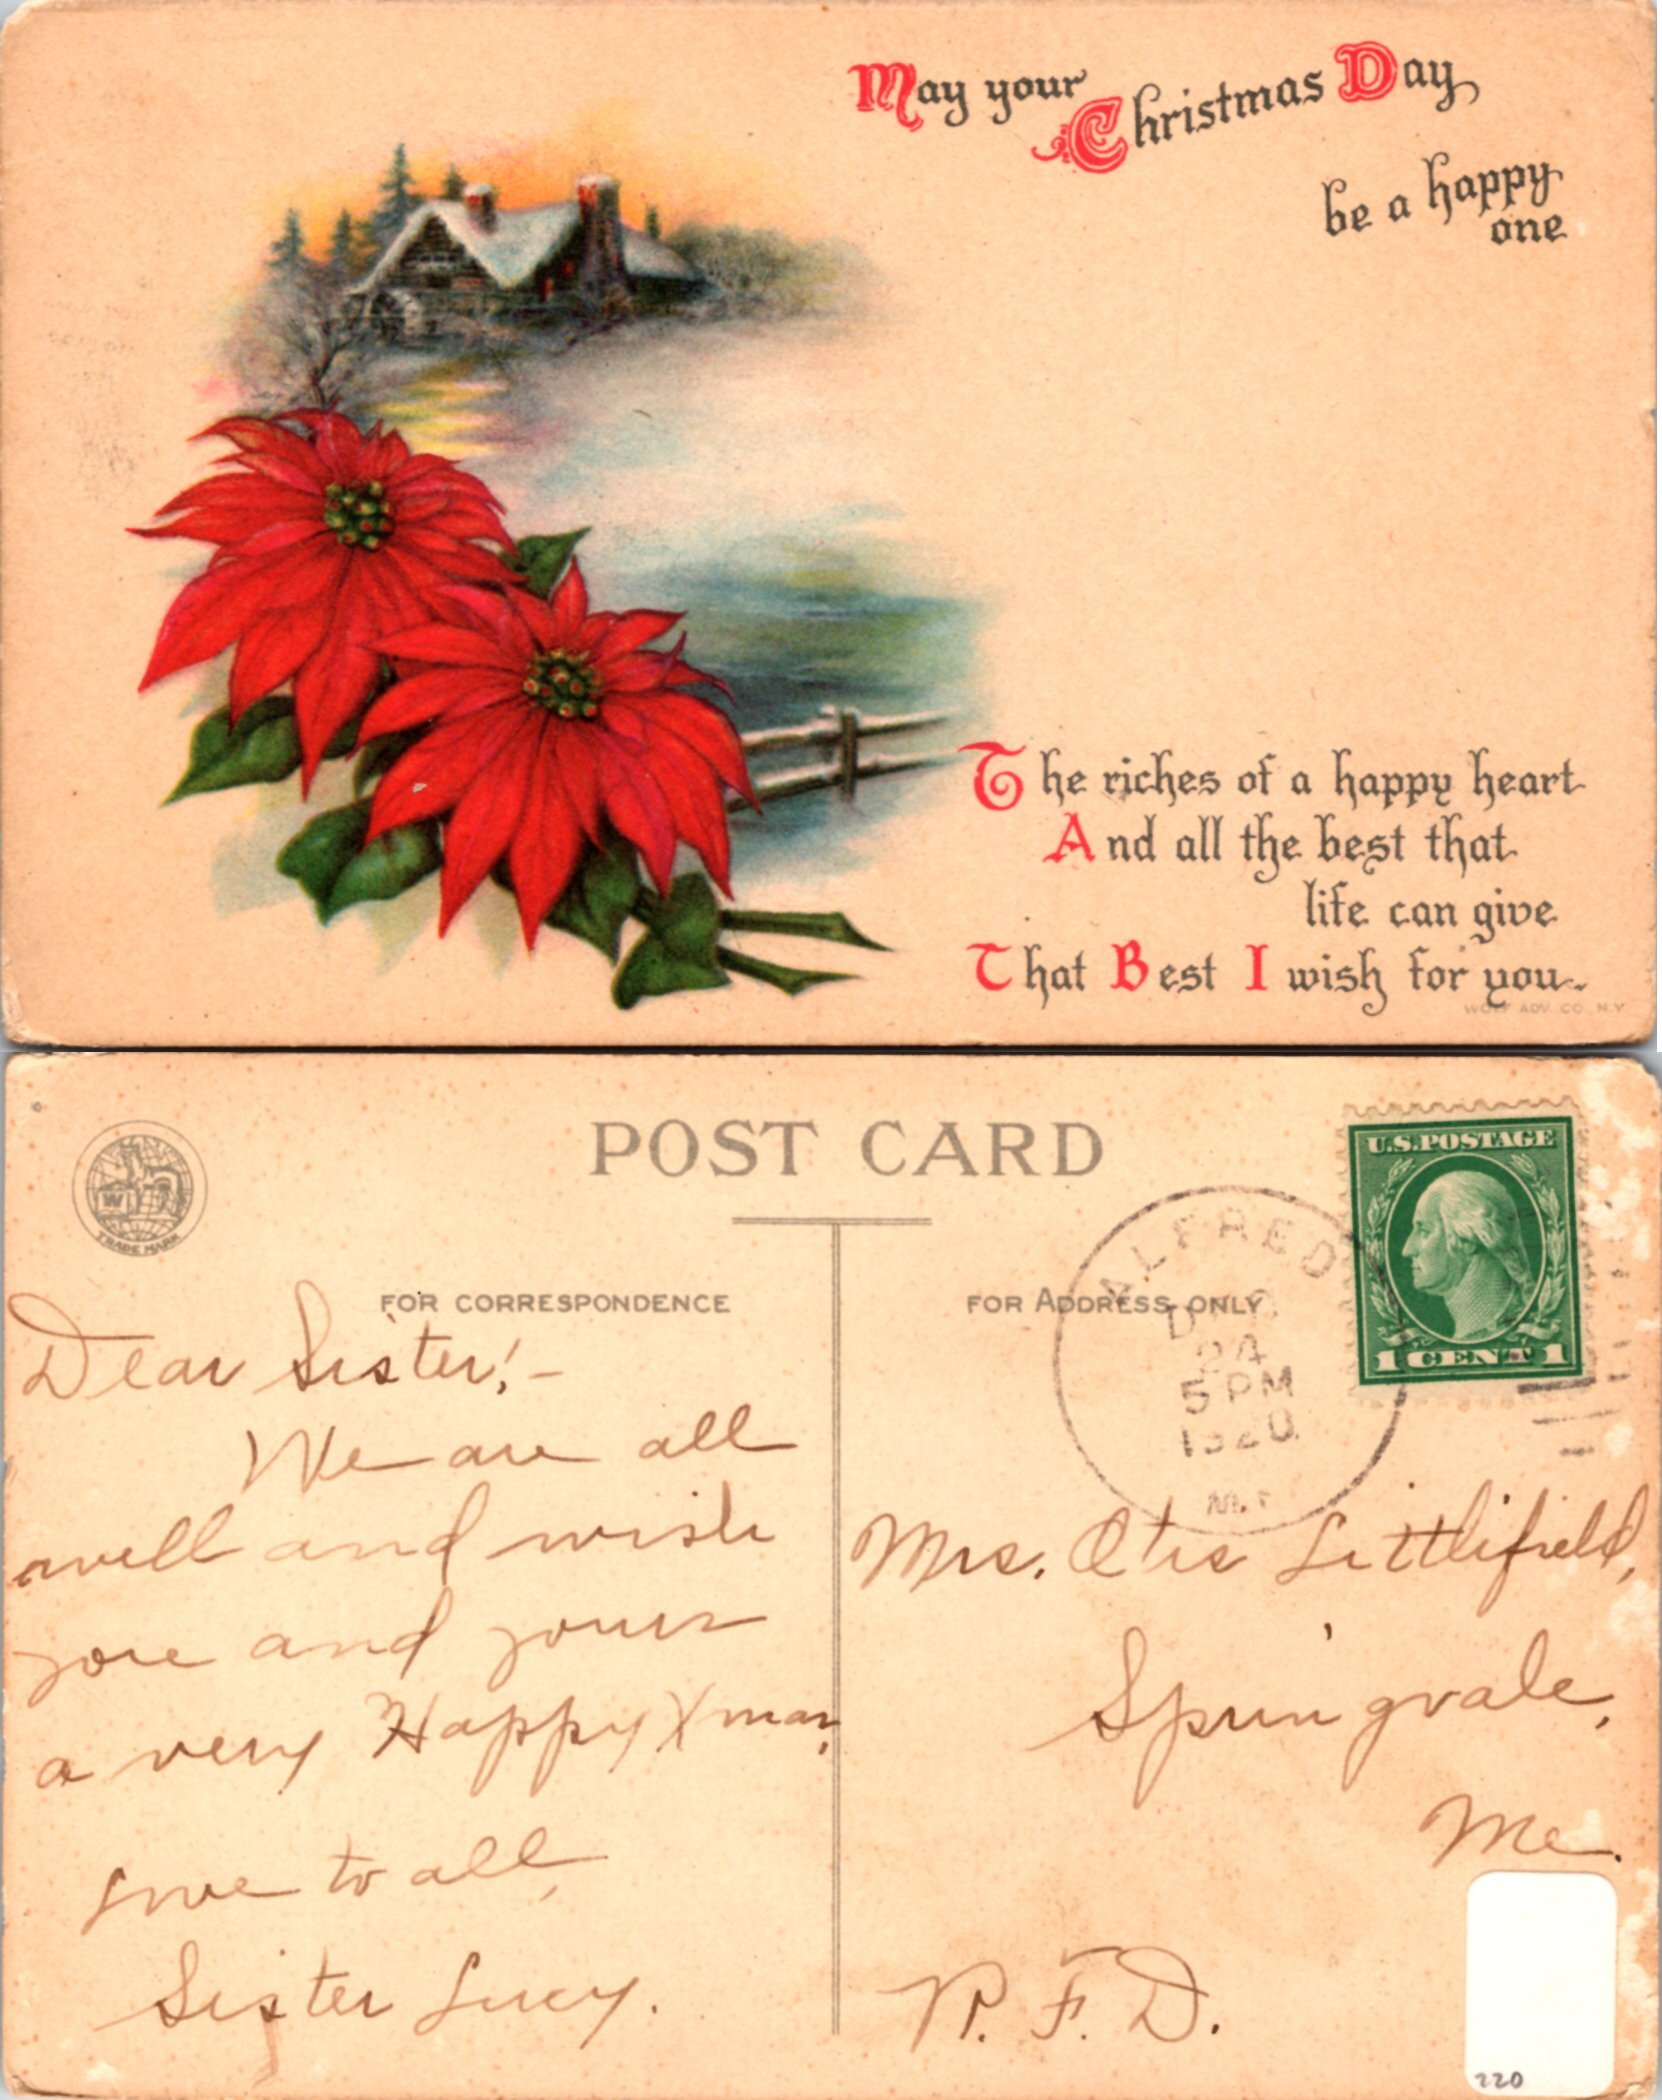 May your Christmas Day
be a happy
one
The riches of a happy heart
And all the best that
life can give
That Best I wish for you.
WOLF ADV. CO. N.Y
POST CARD
W
TRADE MARK
U.S. POSTAGE
1 CENT 1
FOR CORRESPONDENCE
FOR ADDRESS ONLY
ALFRED
DEC
24
5 PM
1920
Dear Sister! -
We are all
well and wish
you and yours
a very Happy Xmas,
Love to all,
Sister Lucy.
Mrs. Otis Littlefield,
Springvale,
Me.
R. F. D.
220